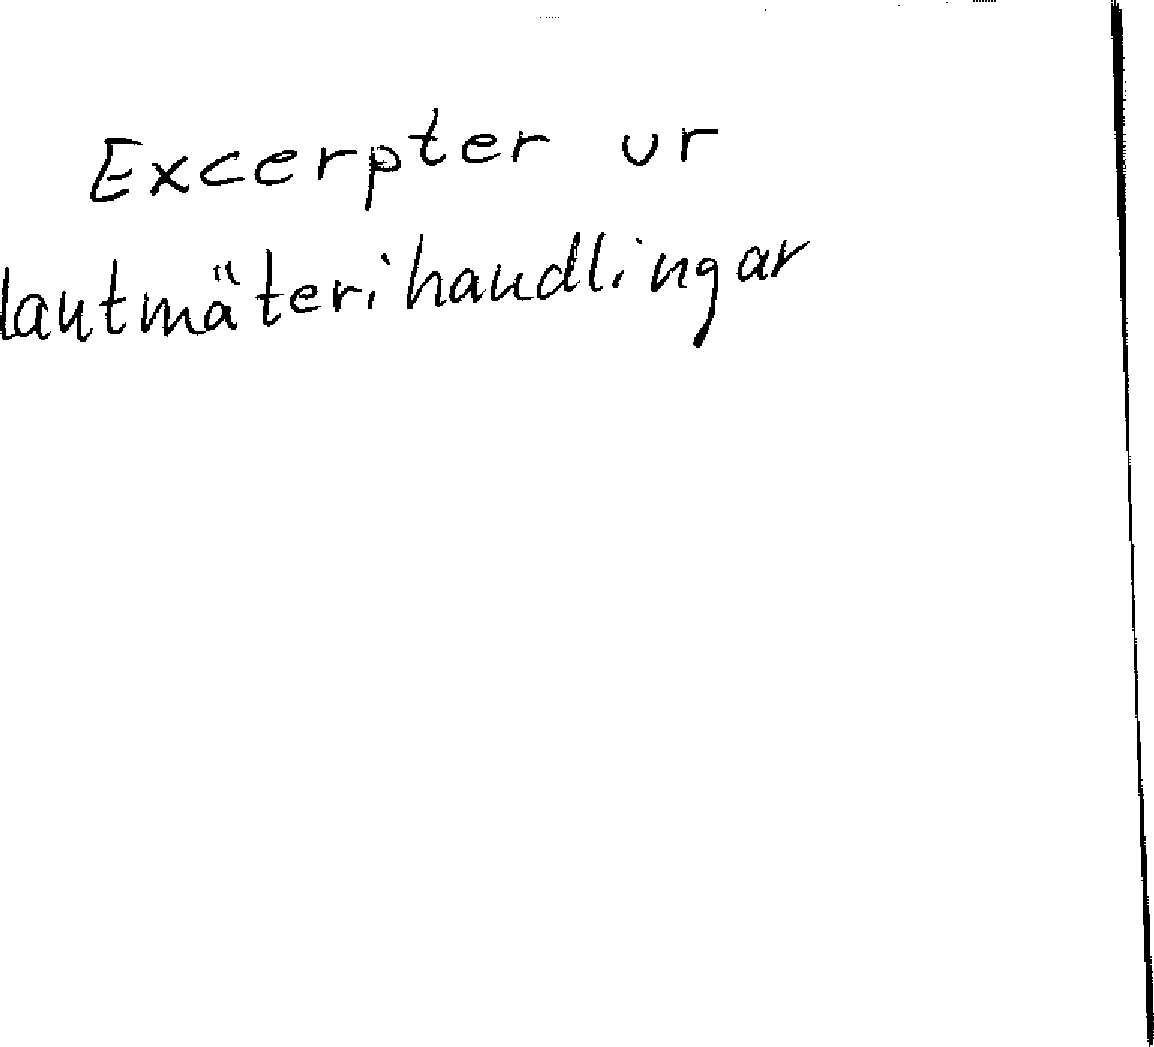 Excerpter ur
lantmäterihandlingar